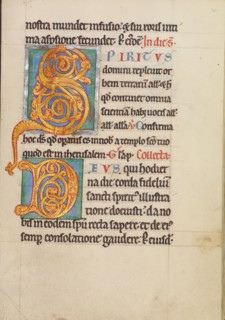 nostra mundet infusio: & sui roris inti
ma aspersione fecundet. In die S.
SPIRITVS
domini repleuit or
bem terrarū all & h
qđ continet omnia
scientiam habet uocis all
all. alla Confirma
hoc ds qđ opatus es in nob a templo sc̄o tuo
quod est in iherusalem. Collecta
DEVS, qui hodier
na die corda fideliū
sancti spiritꝰ illustra
tione docuisti: da no
bis in eodem spū recta sapere & de ei
semp consolatione gaudere. P eiusdē